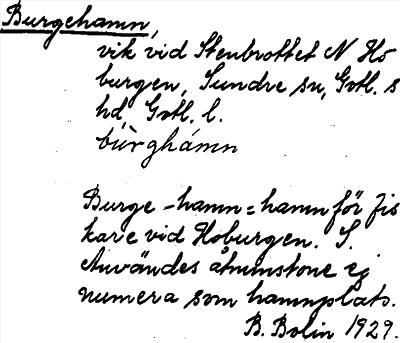 Burgehamn,
vik vid Stenbrottet N Ho
burgen, Sundre sn, Gotl. s
hd, Gotl. l.
bu̇̀rghámn
Burge -hamn = hamn för fis
kare vid Hoburgen. S.
Användes åtminstone ej
numera som hamnplats.
B. Bolin 1929.